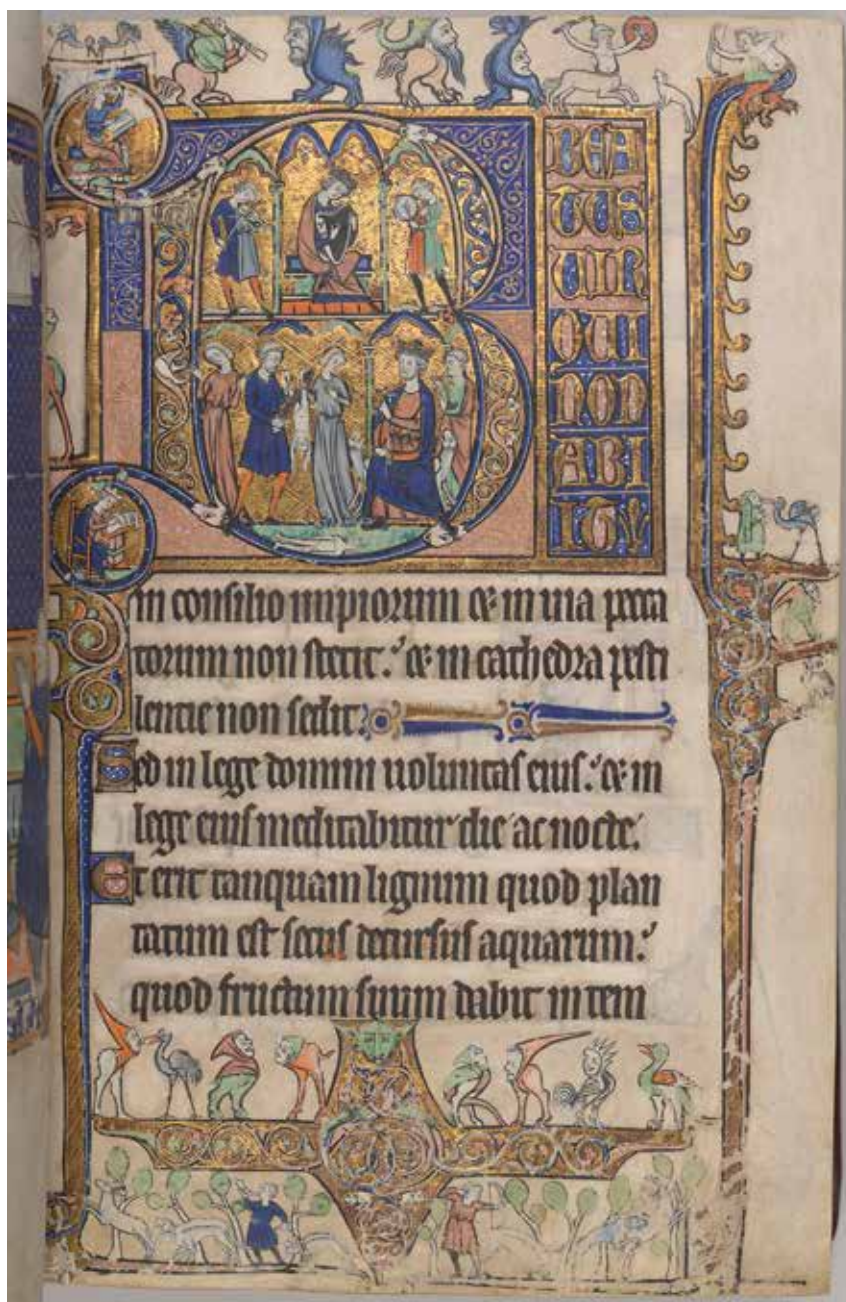 B
BEA
TUS
UIR
QUI
NON
ABI
IT
in consilio impiorum & in uia pecca
torum non stetit. & in cathedra pesti
lentie non sedit.
Sed in lege domini uoluntas eius. & in
lege eius meditabitur die ac nocte.
Et erit tanquam lignum quod plan
tatum est secus decursus aquarum.
quod fructum suum dabit in tem